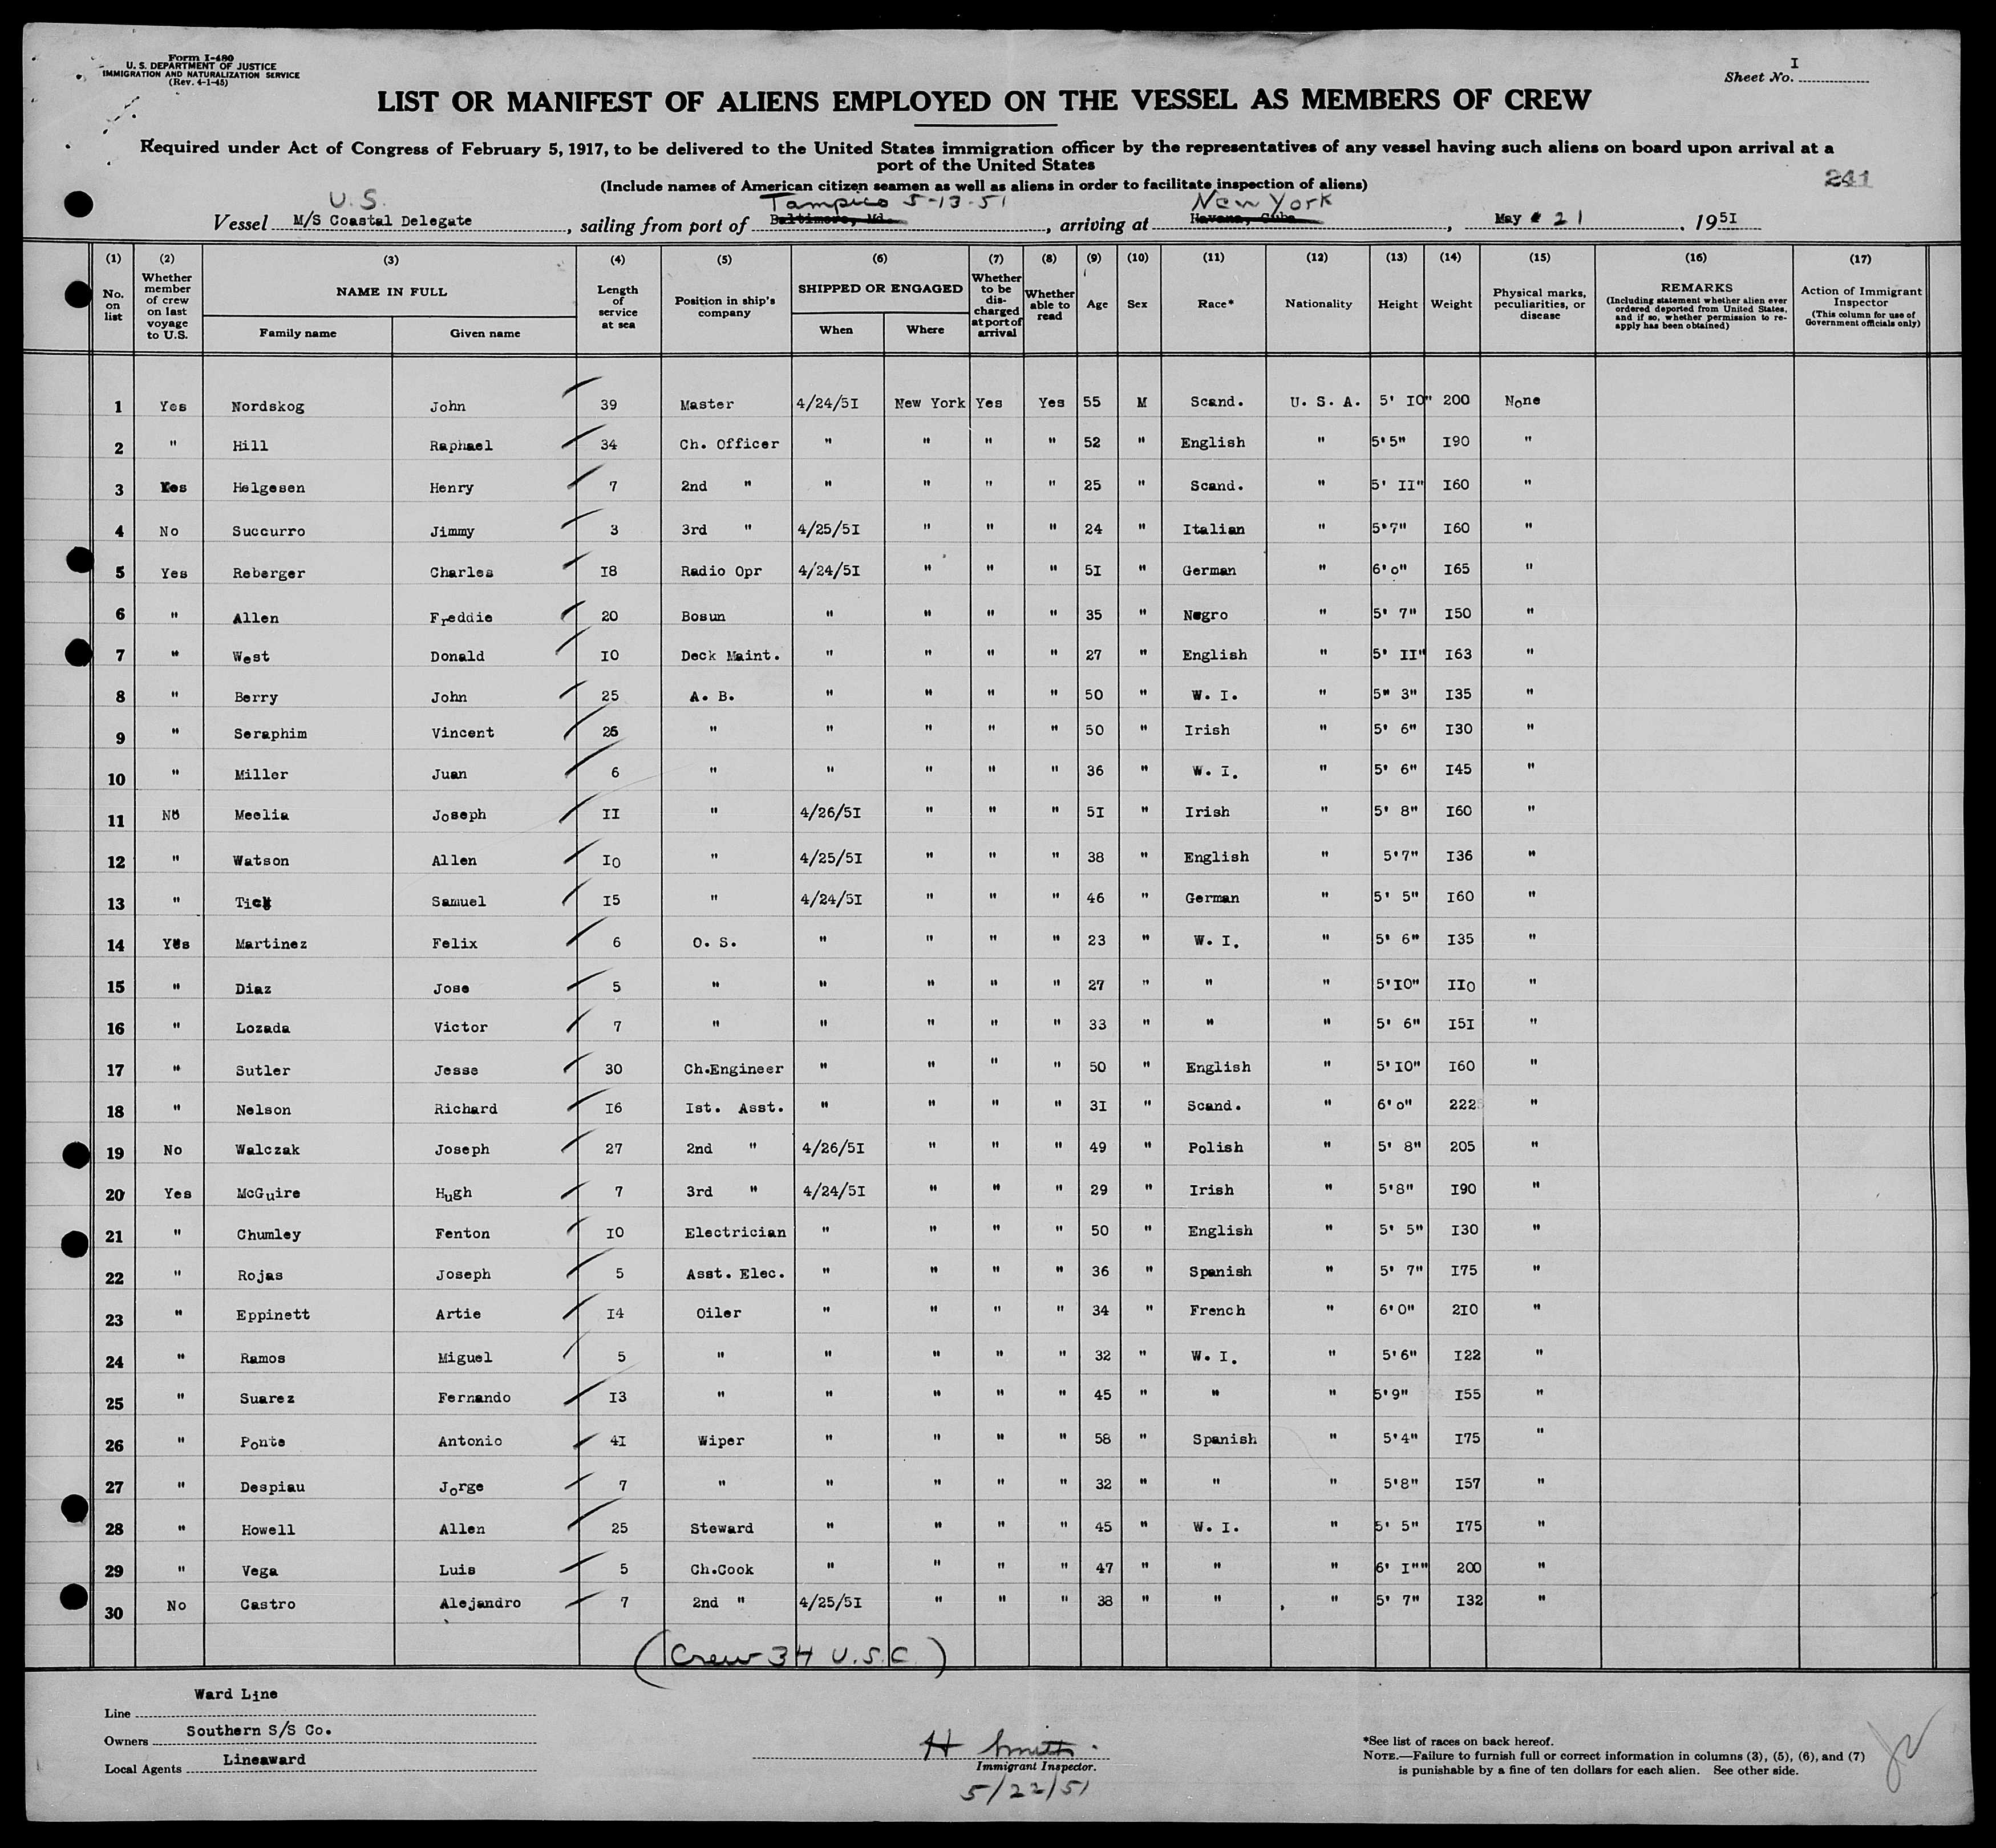 Form I-480
U. S. DEPARTMENT OF JUSTICE
IMMIGRATION AND NATURALIZATION SERVICE
(Rev. 4-1-45)
Sheet No. I
LIST OR MANIFEST OF ALIENS EMPLOYED ON THE VESSEL AS MEMBERS OF CREW
Required under Act of Congress of February 5, 1917, to be delivered to the United States immigration officer by the representatives of any vessel having such aliens on board upon arrival at a
port of the United States
(Include names of American citizen seamen as well as aliens in order to facilitate inspection of aliens)
241
U.S. Tampico 5-13-51 New York
Vessel M/S Coastal Delegate, sailing from port of Baltimore, Md., arriving at Havana, Cuba, May 21, 1951
(1) (2) (3) (4) (5) (6) (7) (8) (9) (10) (11) (12) (13) (14) (15) (16) (17)
No. on list
Whether member of crew on last voyage to U.S.
NAME IN FULL
Family name Given name
Length of service at sea
Position in ship's company
SHIPPED OR ENGAGED
When Where
Whether to be discharged at port of arrival
Whether able to read
Age
Sex
Race*
Nationality
Height
Weight
Physical marks, peculiarities, or disease
REMARKS
(Including statement whether alien ever ordered deported from United States, and if so, whether permission to reapply has been obtained)
Action of Immigrant Inspector
(This column for use of Government officials only)
1 Yes Nordskog John 39 Master 4/24/5I New York Yes Yes 55 M Scand. U. S. A. 5' IO" 200 None
2 " Hill Raphael 34 Ch. Officer " " " " 52 " English " 5'5" I90 "
3 Yes Helgesen Henry 7 2nd " " " " " 25 " Scand. " 5' II" I60 "
4 No Succurro Jimmy 3 3rd " 4/25/5I " " " 24 " Italian " 5'7" I60 "
5 Yes Reberger Charles I8 Radio Opr 4/24/5I " " " 5I " German " 6'0" I65 "
6 " Allen Freddie 20 Bosun " " " " 35 " Negro " 5' 7" I50 "
7 " West Donald I0 Deck Maint. " " " " 27 " English " 5' II" I63 "
8 " Berry John 25 A. B. " " " " 50 " W. I. " 5" 3" I35 "
9 " Seraphim Vincent 25 " " " " " 50 " Irish " 5' 6" I30 "
10 " Miller Juan 6 " " " " " 36 " W. I. " 5' 6" I45 "
11 No Meelia Joseph II " 4/26/5I " " " 5I " Irish " 5' 8" I60 "
12 " Watson Allen I0 " 4/25/5I " " " 38 " English " 5'7" I36 "
13 " Tick Samuel I5 " 4/24/5I " " " 46 " German " 5' 5" I60 "
14 Yes Martinez Felix 6 O. S. " " " " 23 " W. I. " 5' 6" I35 "
15 " Diaz Jose 5 " " " " " 27 " " " 5'I0" II0 "
16 " Lozada Victor 7 " " " " " 33 " " " 5' 6" I5I "
17 " Sutler Jesse 30 Ch.Engineer " " " " 50 " English " 5'I0" I60 "
18 " Nelson Richard I6 Ist. Asst. " " " " 3I " Scand. " 6'0" 222 "
19 No Walczak Joseph 27 2nd " 4/26/5I " " " 49 " Polish " 5' 8" 205 "
20 Yes McGuire Hugh 7 3rd " 4/24/5I " " " 29 " Irish " 5'8" I90 "
21 " Chumley Fenton I0 Electrician " " " " 50 " English " 5' 5" I30 "
22 " Rojas Joseph 5 Asst. Elec. " " " " 36 " Spanish " 5' 7" I75 "
23 " Eppinett Artie I4 Oiler " " " " 34 " French " 6'0" 2I0 "
24 " Ramos Miguel 5 " " " " " 32 " W. I. " 5'6" I22 "
25 " Suarez Fernando I3 " " " " " 45 " " " 5'9" I55 "
26 " Ponte Antonio 4I Wiper " " " " 58 " Spanish " 5'4" I75 "
27 " Despiau Jorge 7 " " " " " 32 " " " 5'8" I57 "
28 " Howell Allen 25 Steward " " " " 45 " W. I. " 5' 5" I75 "
29 " Vega Luis 5 Ch.Cook " " " " 47 " " " 6' I"" 200 "
30 No Castro Alejandro 7 2nd " 4/25/5I " " " 38 " " " 5' 7" I32 "
(Crew 34 U.S.C.)
Line Ward Line
Owners Southern S/S Co.
Local Agents Lineaward
H Smith.
Immigrant Inspector.
5/22/51
*See list of races on back hereof.
NOTE.—Failure to furnish full or correct information in columns (3), (5), (6), and (7)
is punishable by a fine of ten dollars for each alien. See other side.